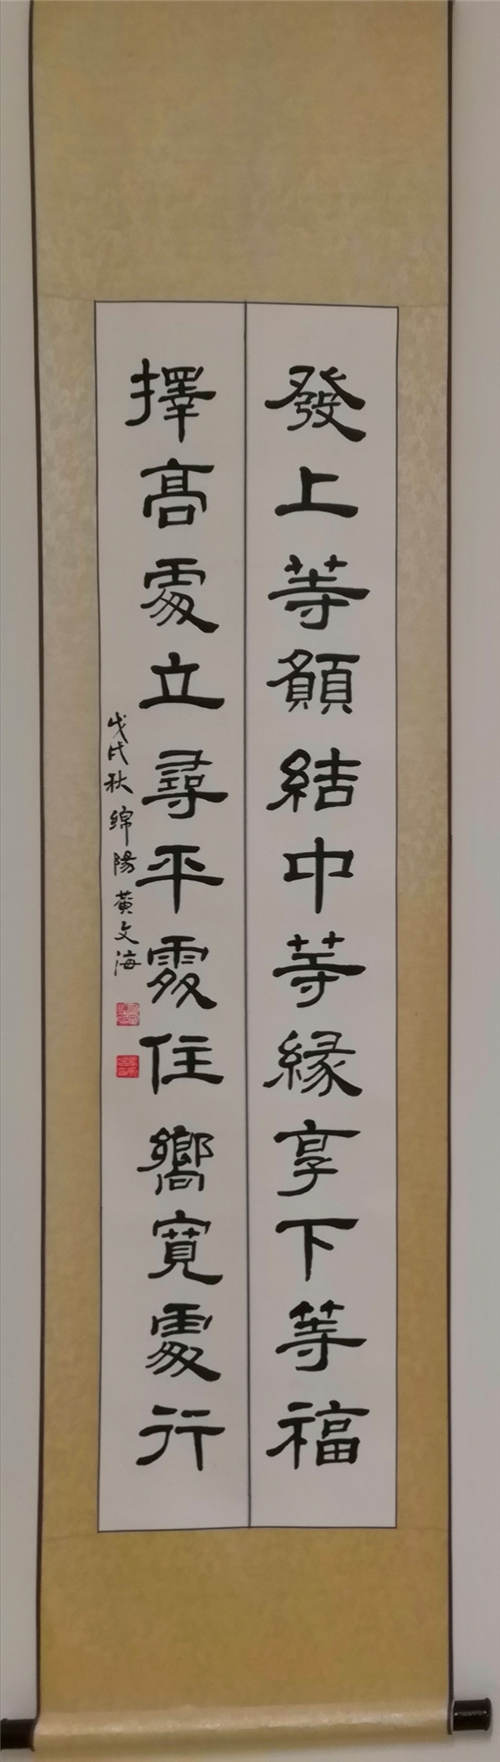 發上等願結中等緣享下等福
擇高處立尋平處住嚮寬處行
戊戌秋绵陽黄文海